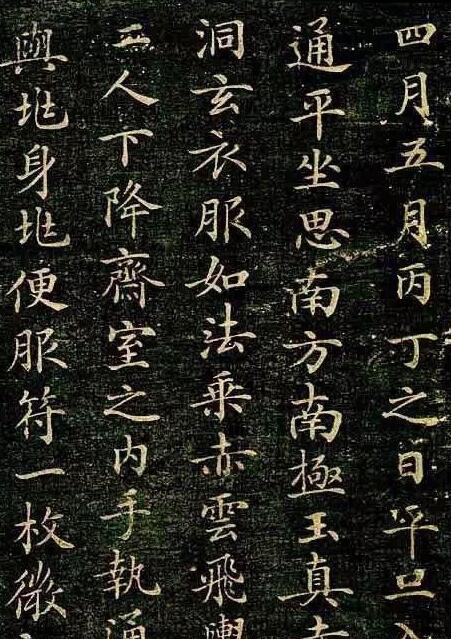 四月五月丙丁之日平旦
通平坐思南方南極玉真
洞玄衣服如法乘赤雲飛輿
二人下降齋室之内手執通
與兆身兆便服符一枚微